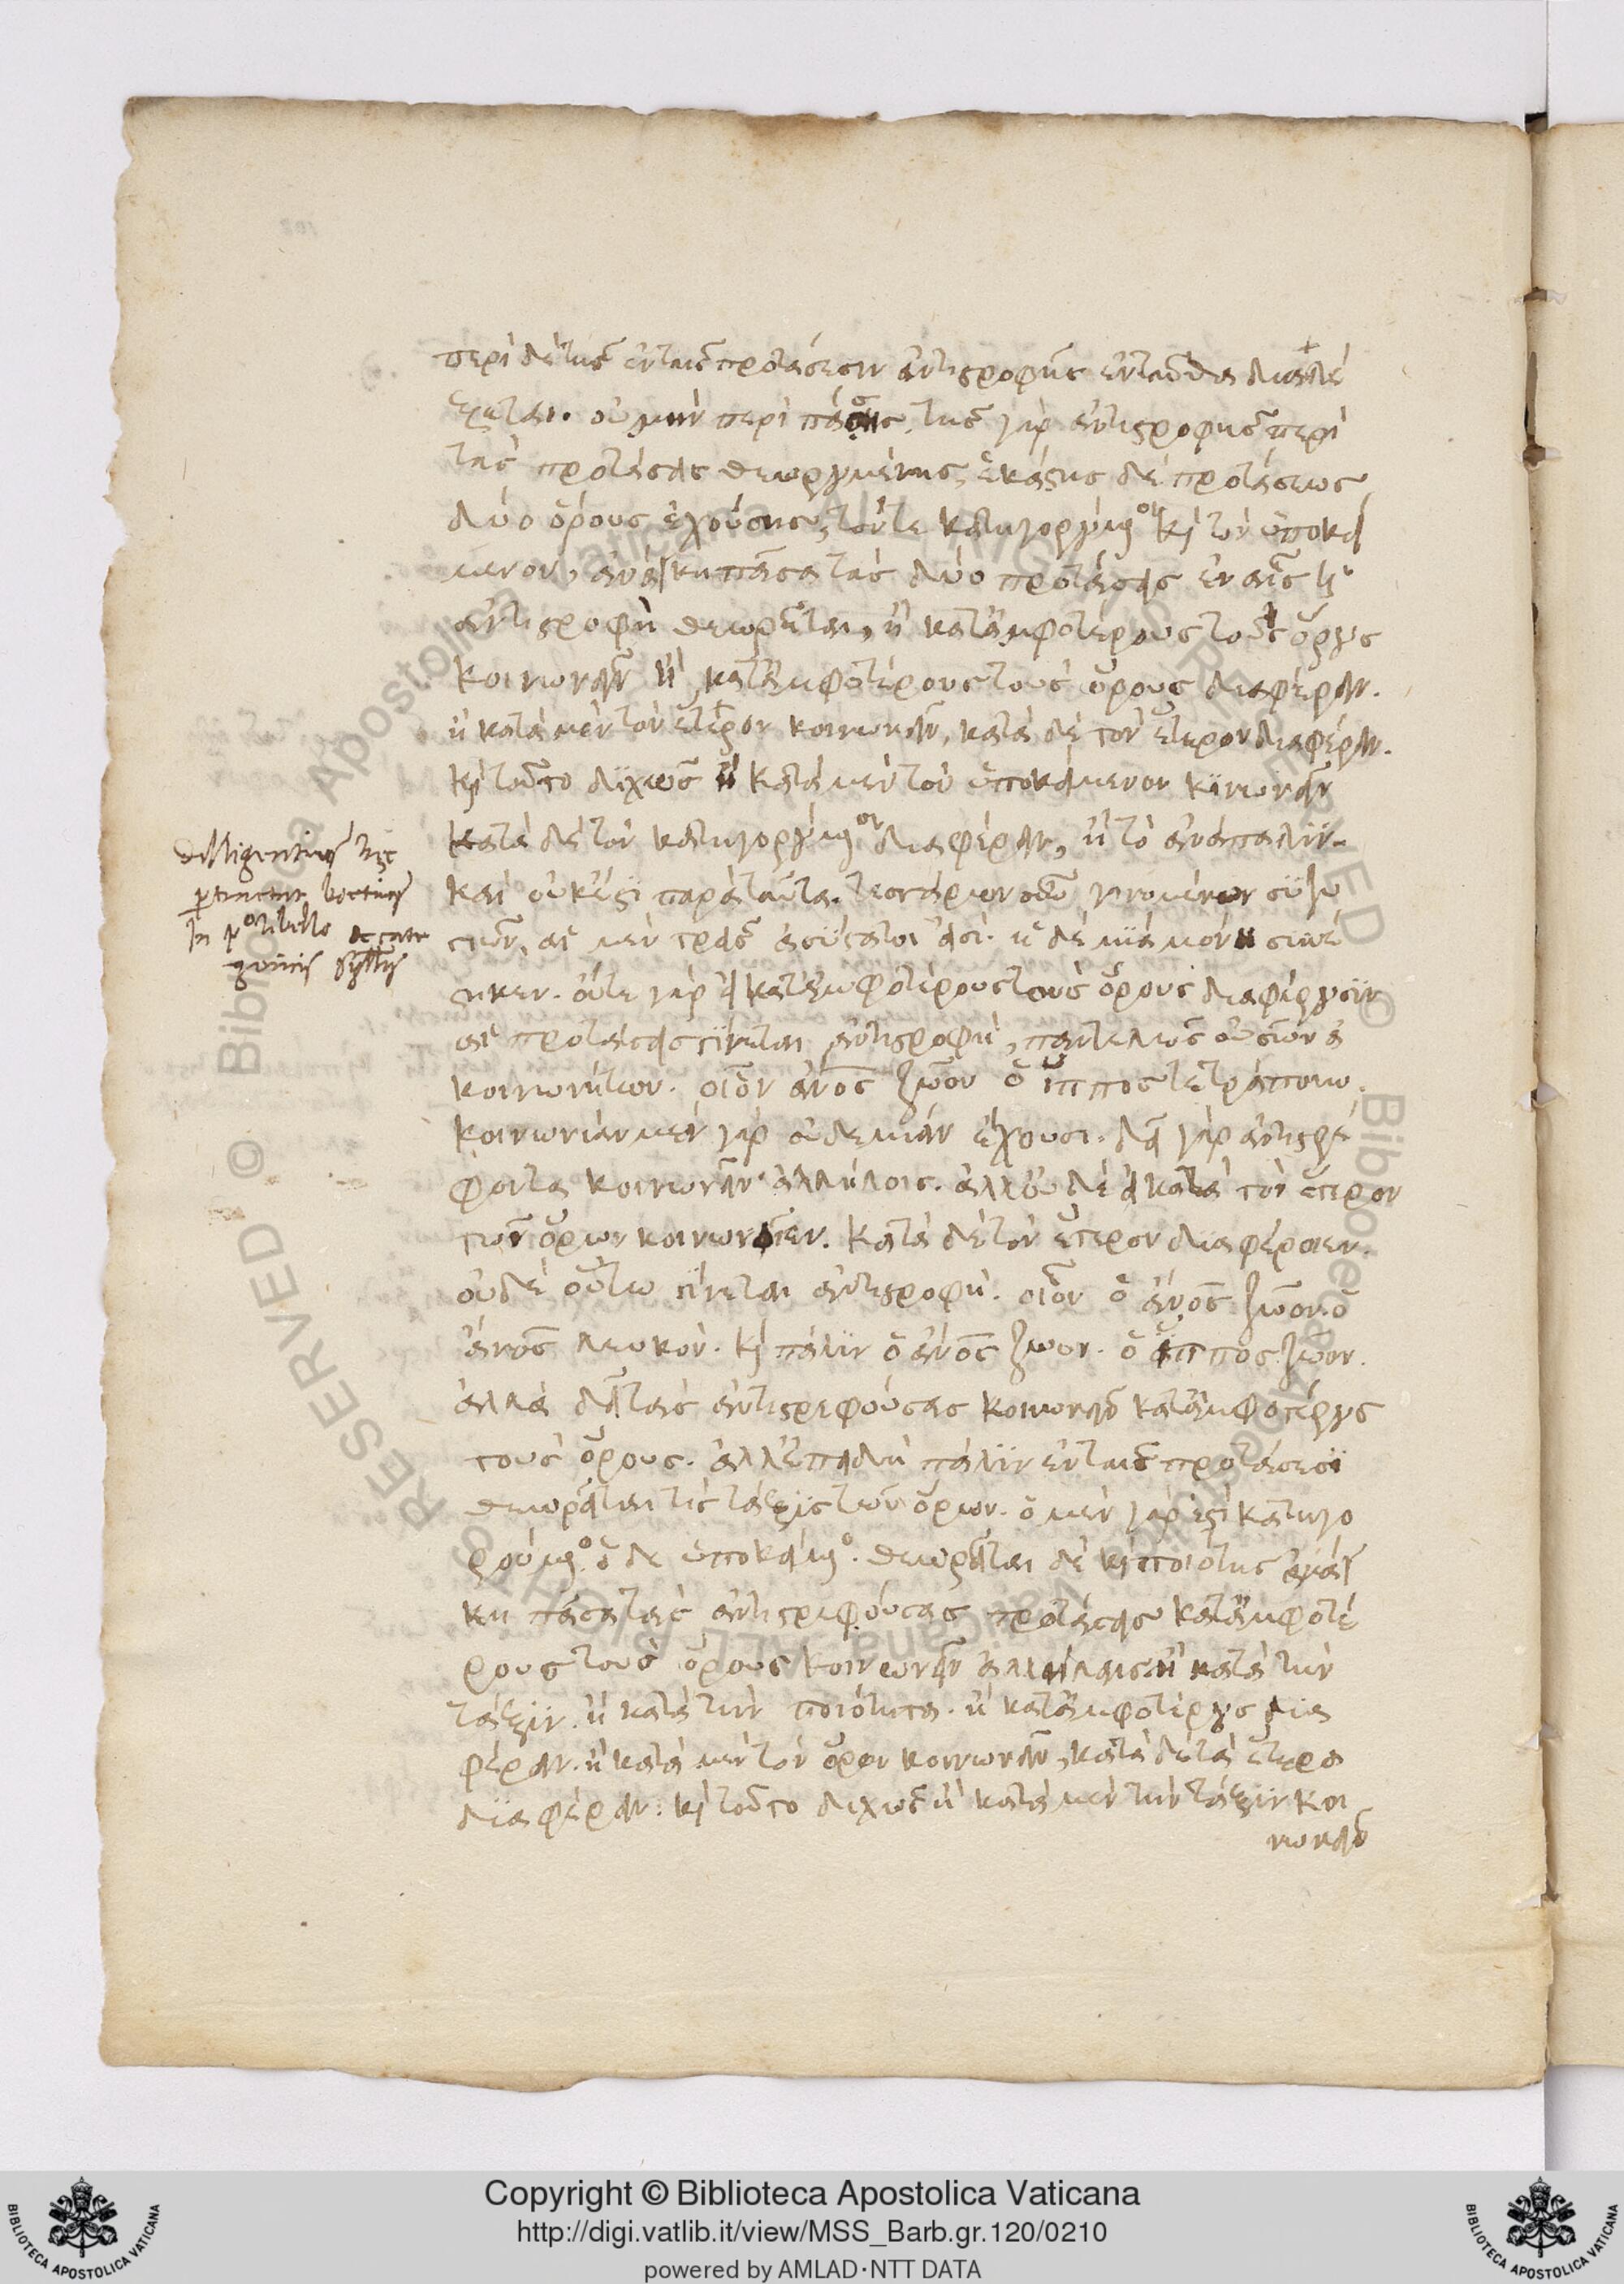 περὶ δὲ τῆς ἐν ταῖς προτάσεσιν ἀντιστροφῆς ἐνταῦθα διαλέ
ξεται. οὐ μὴν περὶ πάσης. τῆς γὰρ ἀντιστροφῆς περὶ
τὰς προτάσεις θεωρουμένης, ἑκάστης δὲ προτάσεως
δύο ὅρους ἐχούσης, τόν τε κατηγορούμενον κ τὸν ὑποκεί
μενον, ἀνάγκη πᾶσα τὰς δύο προτάσεις ἐν αἷς ἡ
ἀντιστροφὴ θεωρεῖται, ἢ κατ' ἀμφοτέρους τοὺς ὅρους
κοινωνεῖν ἢ κατ' ἀμφοτέρους τοὺς ὅρους διαφέρειν.
ἢ κατὰ μὲν τὸν ἕτερον κοινωνεῖν, κατὰ δὲ τὸν ἕτερον διαφέρειν.
κ τοῦτο διχῶς ἢ κατὰ μὲν τὸν ὑποκείμενον κοινωνεῖν
κατὰ δὲ τὸν κατηγορούμενον διαφέρειν, ἢ τὸ ἀνάπαλιν.
καὶ οὐκ ἔστι παρὰ ταῦτα. τεσσάρων οὖν γινομένων συζυ
γιῶν, αἱ μὲν τρεῖς ἀσύστατοί εἰσι. ἡ δὲ μία μόνη συνέ
στηκεν. οὔτε γὰρ εἰ κατ' ἀμφοτέρους τοὺς ὅρους διαφέρουσιν
αἱ προτάσεις γίνεται ἀντιστροφὴ, παντελῶς οὐσῶν ἀ
κοινωνήτων. οἷον ἄνος ζῶον ὁ ἵππος τετράπουν.
κοινωνίαν μὲν γὰρ οὐδεμίαν ἔχουσι. δεῖ γὰρ ἀντιστρέ
φοντα κοινωνεῖν ἀλλήλοις. ἀλλ' οὐδὲ εἰ κατὰ τὸν ἕτερον
τῶν ὅρων κοινωνοῖεν. κατὰ δὲ τὸν ἕτερον διαφέροιεν.
οὐδὲ οὕτω γίνεται ἀντιστροφή. οἷον ὁ ἄνος ζῶον. ὁ
ἄνος λευκόν. κ πάλιν ὁ ἄνος ζῶον. ὁ ἵππος ζῶον.
ἀλλὰ δεῖ τὰς ἀντιστρεφούσας κοινωνεῖν κατ' ἀμφοτέρους
τοὺς ὅρους. ἀλλ' ἐπειδὴ πάλιν ἐν ταῖς προτάσεσι
θεωρεῖται τὶς τάξις τῶν ὅρων. ὁ μὲν γάρ ἐστι κατηγο
ρούμενος ὁ δὲ ὑποκείμενος. θεωρεῖται δὲ κ ποιότης ἀνάγ
κη πᾶσα τὰς ἀντιστρεφούσας προτάσεις κατ' ἀμφοτέ
ρους τοὺς ὅρους κοινωνεῖν ἀλλήλαις ἢ κατὰ τὴν
τάξιν. ἢ κατὰ τὴν ποιότητα. ἢ κατ' ἀμφοτέρους δια
φέρειν. ἢ κατὰ μὲν τὸν ὅρον κοινωνεῖν, κατὰ δὲ τὰ ἕτερα
διαφέρειν. κ τοῦτο διχῶς ἢ κατὰ μὲν τὴν τάξιν κοι
νωνεῖν
dilligentius hęc
pertractat boetius
in p.o libello de cate
goricis syllis
Copyright © Biblioteca Apostolica Vaticana
http://digi.vatlib.it/view/MSS_Barb.gr.120/0210
powered by AMLAD·NTT DATA